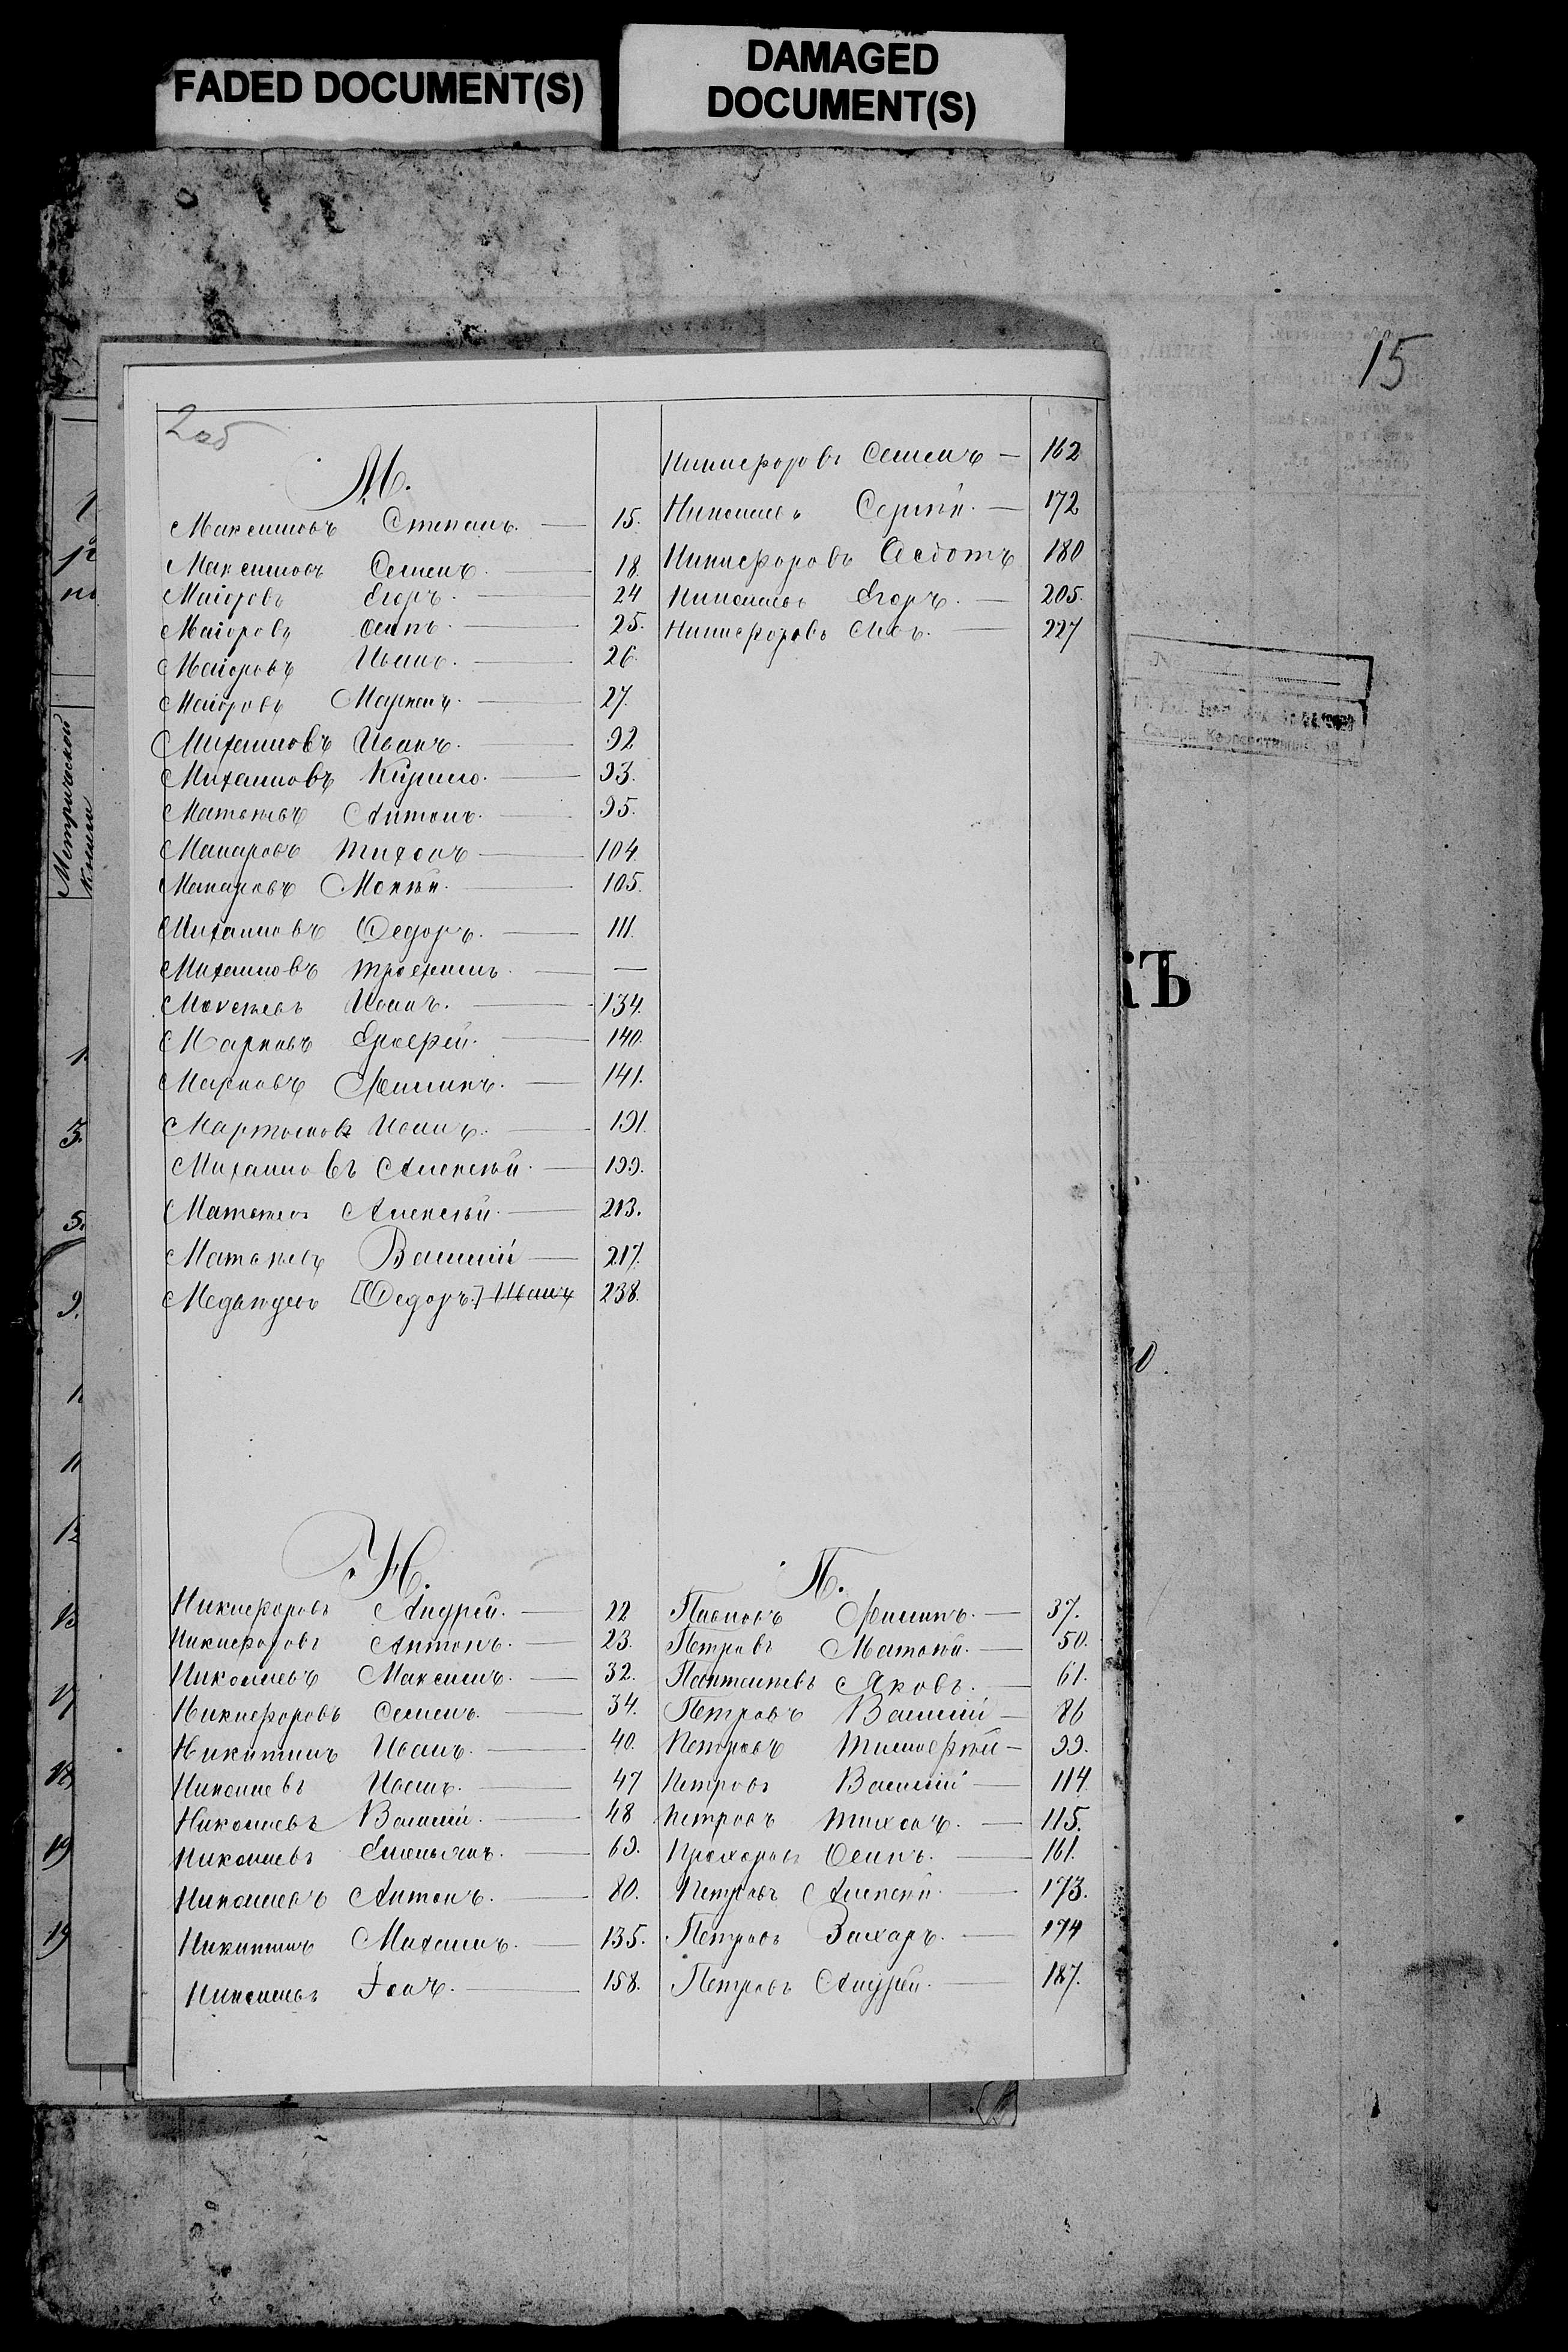 FADED DOCUMENT(S)
DAMAGED
DOCUMENT(S)
15
2об
М.
Максимовъ Степанъ. — 15.
Максимовъ Семенъ. — 18.
Маіоровъ Егоръ. — 24
Маіоровъ Осипъ. — 25.
Маіоровъ Иванъ. — 26.
Маіоровъ Маркелъ. — 27.
Михаиловъ Иванъ. — 92
Михаиловъ Кирило. — 93.
Матвѣевъ Антонъ. — 95.
Макаровъ Тихонъ — 104.
Макаровъ Мокѣй. — 105.
Михаиловъ Ѳедоръ. — 111.
Михаиловъ Трофимъ. — —
Моисеевъ Иванъ. — 134.
Марковъ Ерофей. — 140.
Марковъ Филипъ. — 141.
Мартыновъ Иванъ. — 191.
Михаиловъ Алексѣй. — 199.
Матвѣевъ Алексѣй. — 213.
Матвѣевъ Василій — 217.
[Ѳедоръ.] Иванъ 238.
Никифоровъ Семенъ — 162
Николаевъ Сергѣй. — 172
Никифоровъ Ѳедотъ 180
Николаевъ Егоръ. — 205.
Никифоровъ — 227
Н.
Никифоровъ Андрей. — 22
Никифоровъ Антонъ. — 23.
Николаевъ Максимъ. — 32.
Никифоровъ Семенъ. — 34.
Никитинъ Иванъ. — 40.
Николаевъ Иванъ. — 47
Николаевъ Василій. — 48
Николаевъ Емельянъ. — 69.
Николаевъ Антонъ. — 80.
Никитинъ Михаилъ. — 135.
Николаевъ — 158.
П.
Павловъ Филипъ. — 37.
Петровъ Матвѣй. — 50.
Пантелѣевъ Яковъ. — 61.
Петровъ Василій — 86
Петровъ Тимофѣй — 99.
Петровъ Василій — 114
Петровъ Тихонъ. — 115.
Прохоровъ Осипъ. — 161.
Петровъ Алексѣй. — 173.
Петровъ Захаръ. — 174
Петровъ Андрей. — 187.
Метрической
книги
Ъ